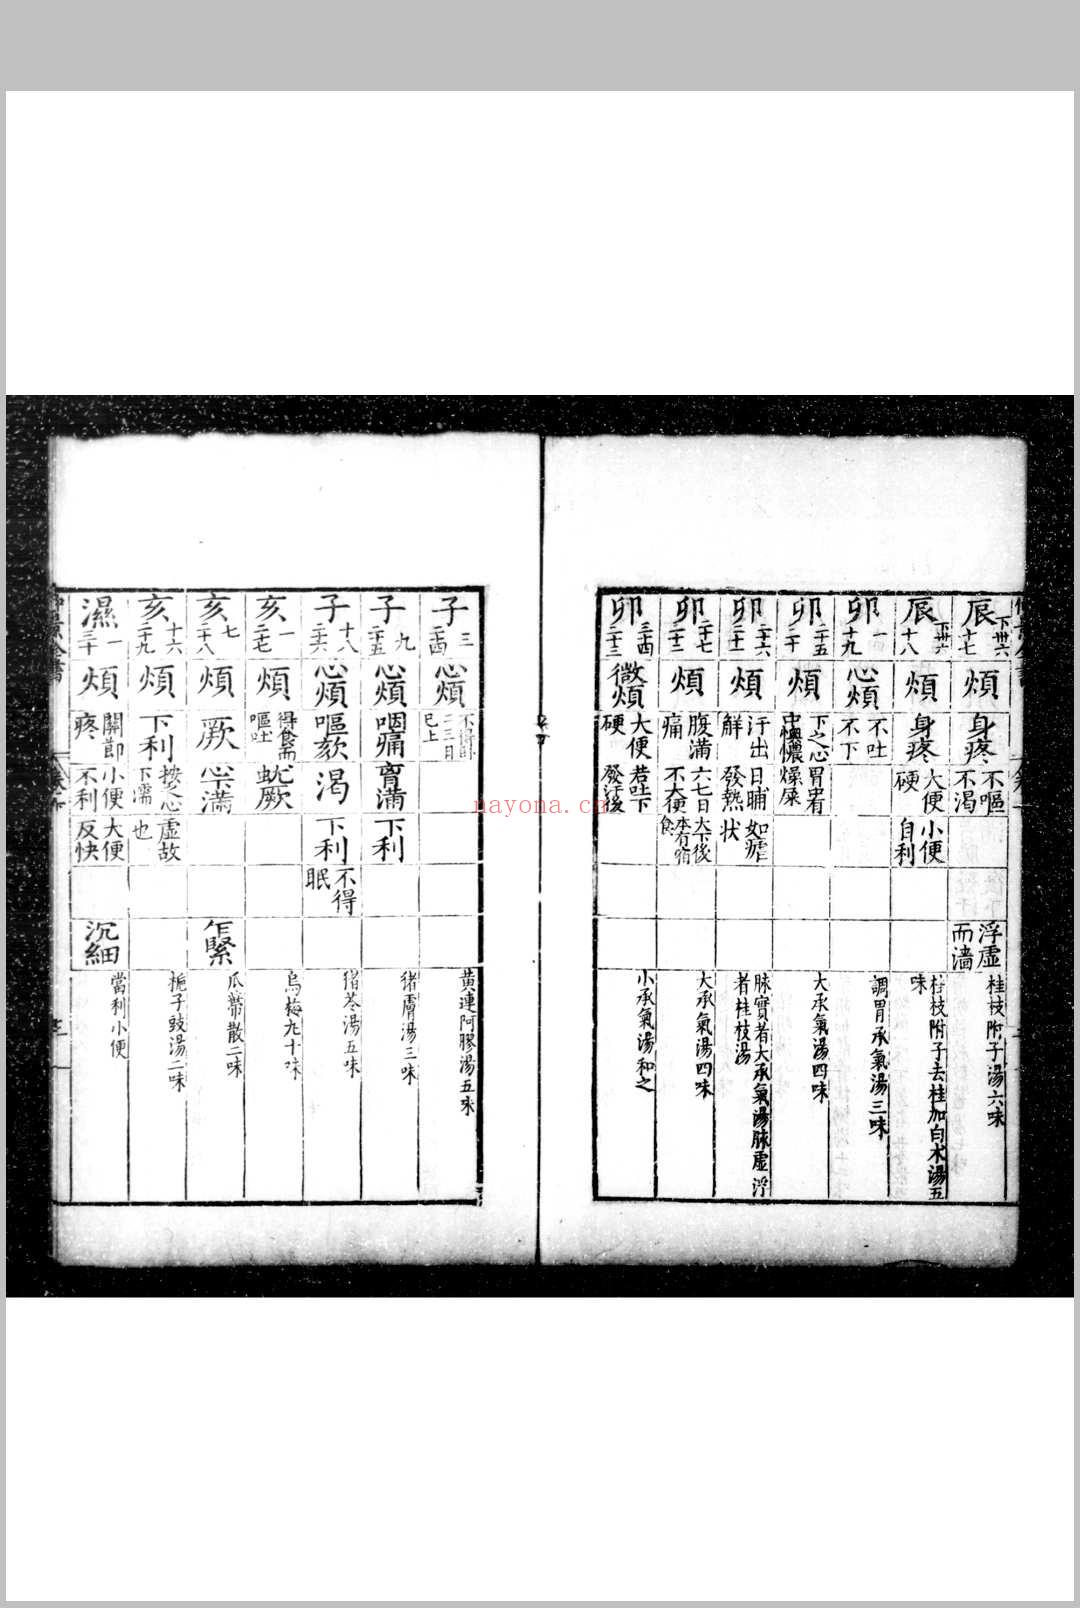 辰 下卅六 十七 煩 身疼 不嘔不渴 浮虛而濇 桂枝附子湯六味
辰 下卅六 十八 煩 身疼 大便硬 小便自利 桂枝附子去桂加白朮湯五味
卯 一 十九 心煩 不吐不下 調胃承氣湯三味
卯 二十五 二十 煩 下之心中懊憹 胃有燥屎 大承氣湯四味
卯 二十六 二十一 煩 汗出解 日晡發熱 如瘧狀 脉實者大承氣湯脉虛浮者桂枝湯
卯 二十七 二十二 煩 腹滿痛 六七日不大便 大下後本有宿食 大承氣湯四味
卯 三十四 二十三 微煩 大便硬 若吐下發汗後 小承氣湯和之
子 三 二十四 心煩 不得卧二三日已上 黄連阿膠湯五味
子 九 二十五 心煩 咽痛 胷滿 下利 猪膚湯三味
子 十八 二十六 心煩 嘔欬 渴 下利 不得眠 猪苓湯五味
亥 一 二十七 煩 得食而嘔吐 蚘厥 烏梅丸十味
亥 七 二十八 煩 厥 心滿 乍緊 瓜蔕散二味
亥 十六 二十九 煩 下利 按心下濡 虛故也 梔子豉湯二味
濕 一 三十 煩 關節疼 小便不利 大便反快 沉細 當利小便
nayona.cn